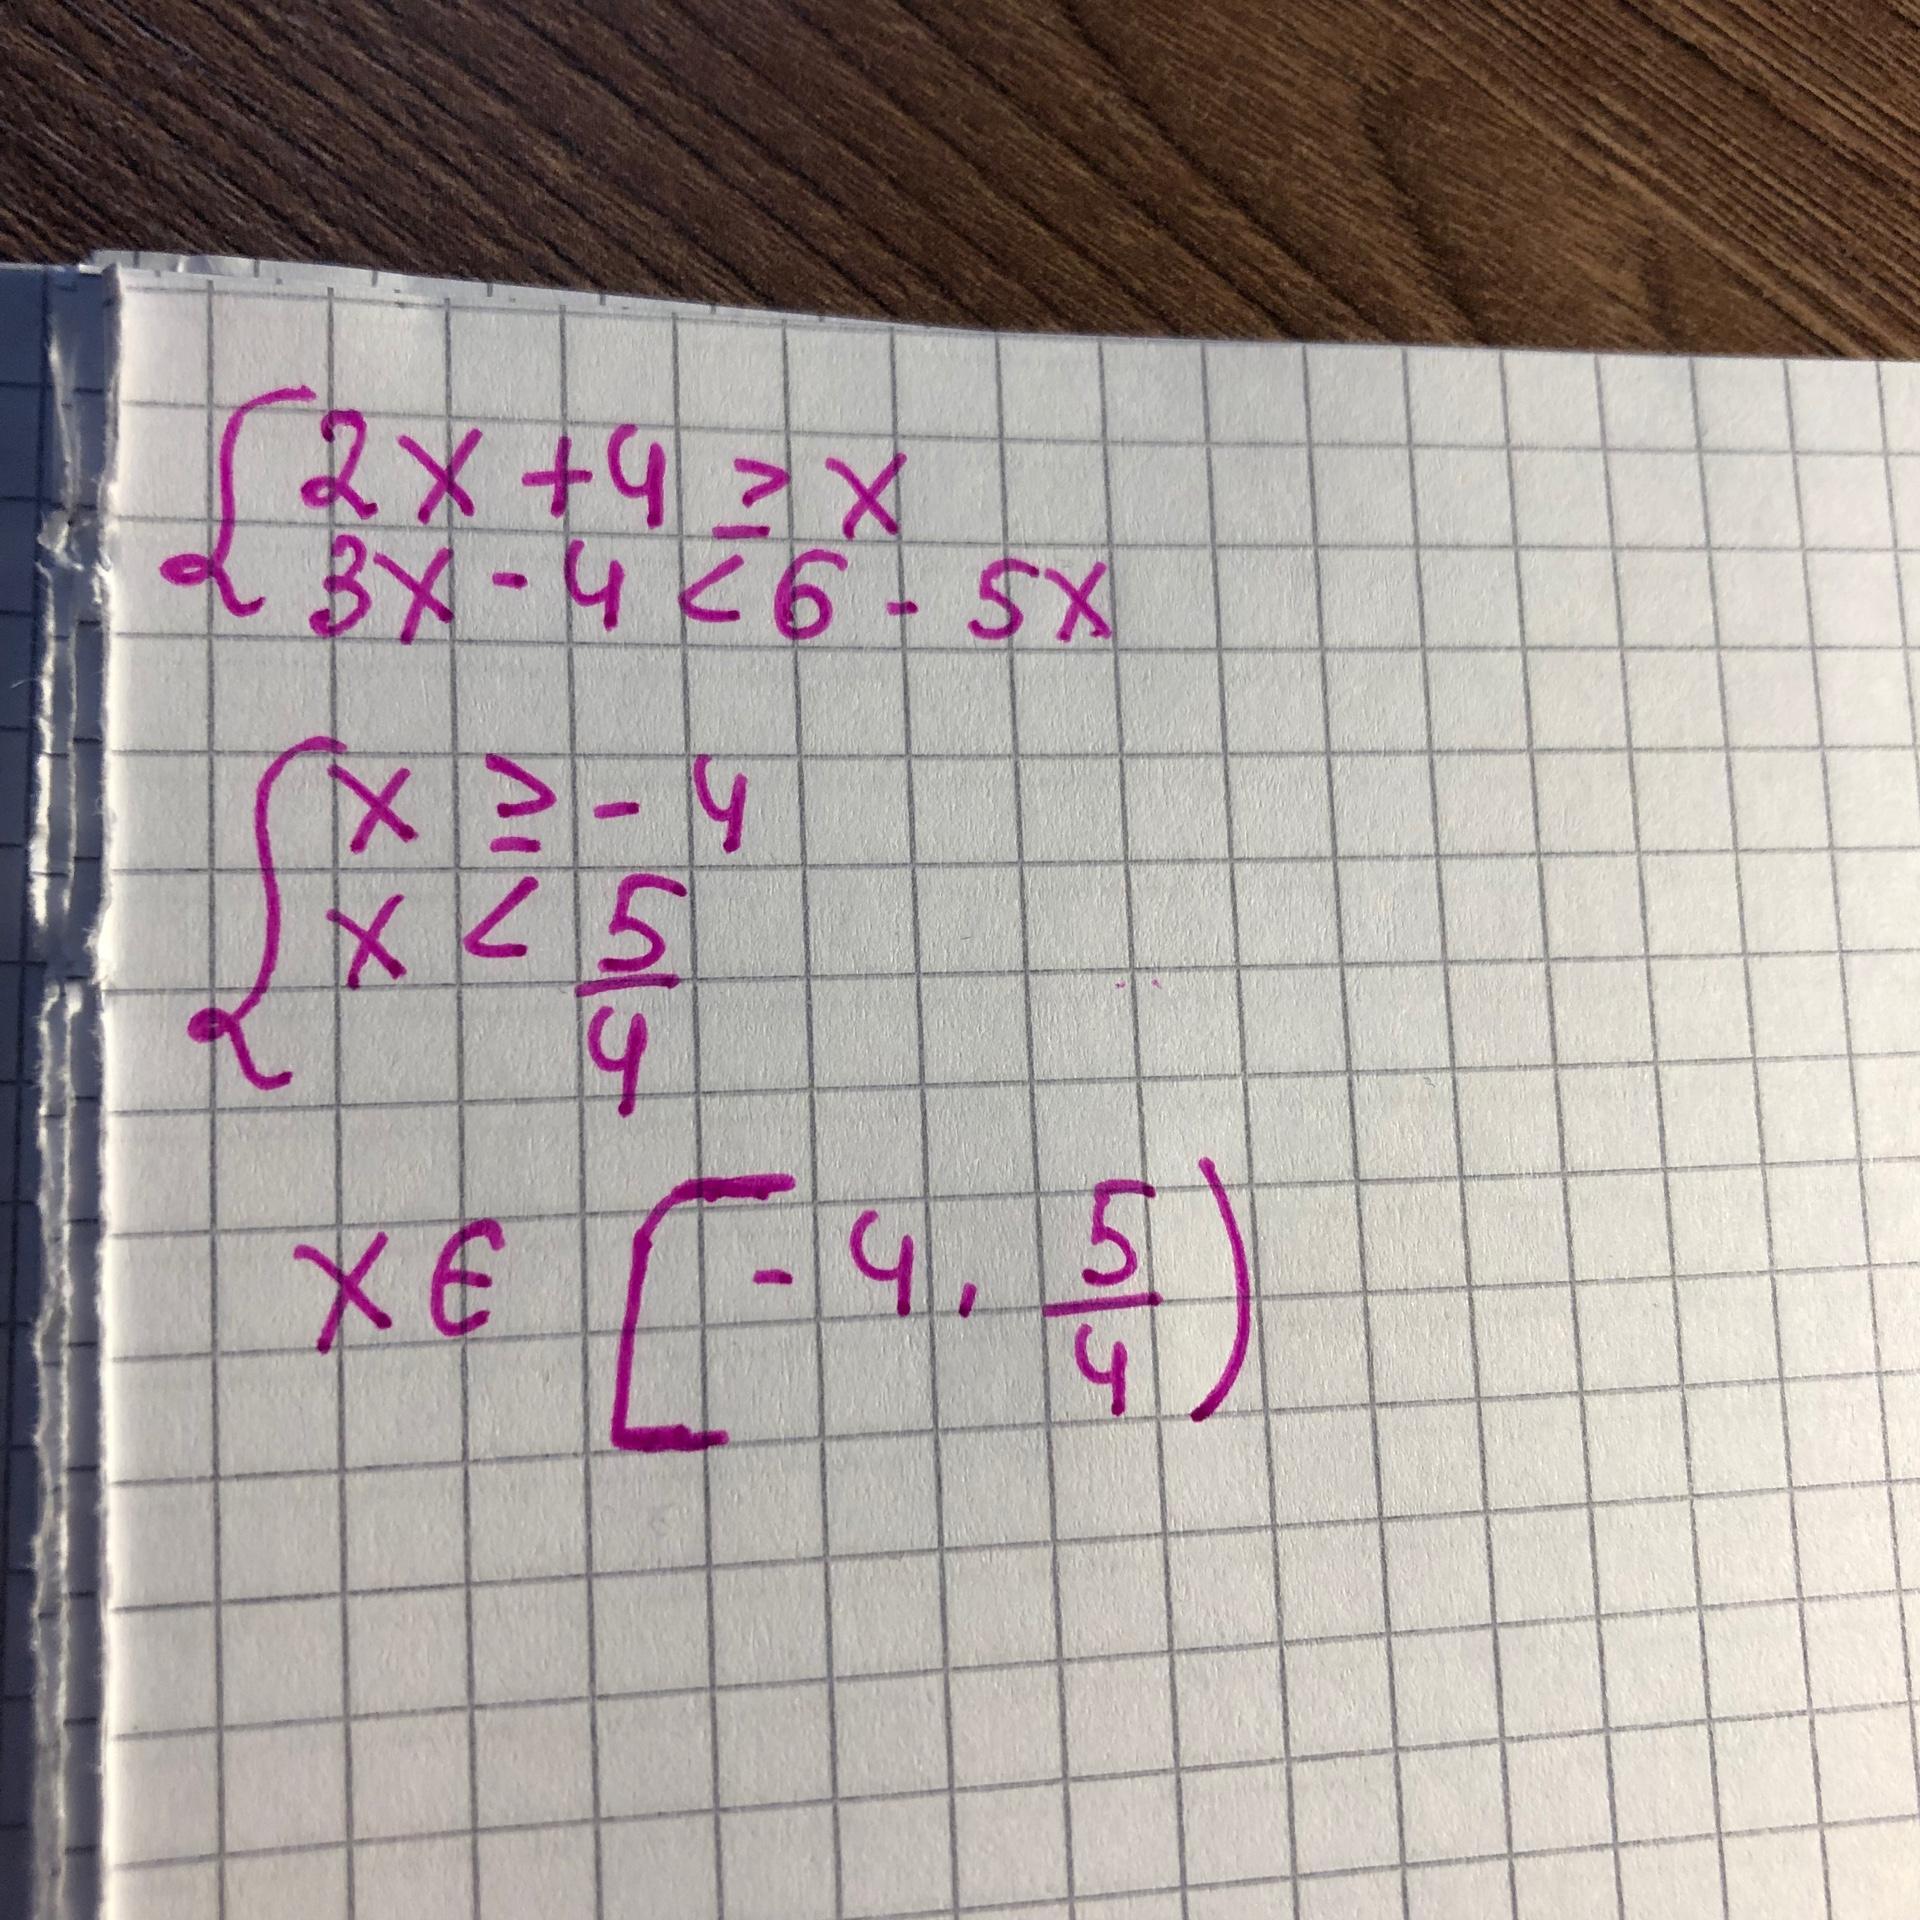 { 2x + 4 ≥ x
3x - 4 < 6 - 5x
{ x ≥ - 4
x < 5/4
x ∈ [ - 4, 5/4 )